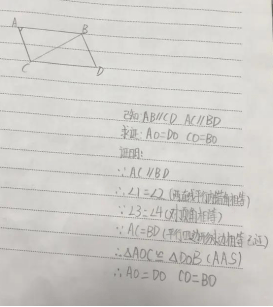 A
B
C
D
已知:AB//CD AC//BD
求证:AO=DO CO=BO
证明:
∵AC//BD
∴∠1=∠2(两直线平行内错角相等)
∵∠3=∠4(对顶角相等)
∵AC=BD(平行四边形对边相等 已证)
∴△AOC≌△DOB(AAS)
∴AO=DO CO=BO